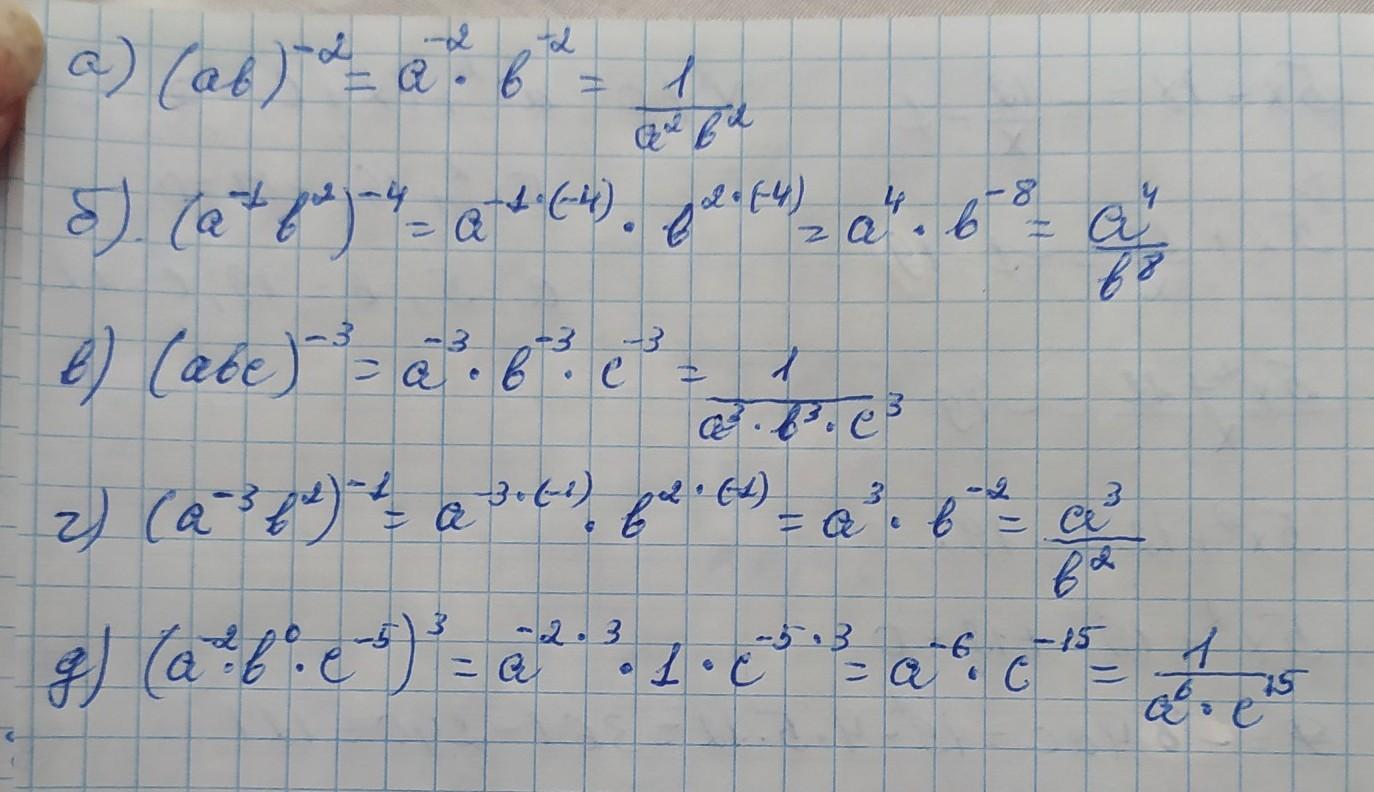 а) (ab)⁻² = a⁻² · b⁻² = 1/(a² b²)
б). (a⁻¹ b²)⁻⁴ = a⁻¹·⁽⁻⁴⁾ · b²·⁽⁻⁴⁾ = a⁴ · b⁻⁸ = a⁴/b⁸
в) (abc)⁻³ = a⁻³ · b⁻³ · c⁻³ = 1/(a³ · b³ · c³)
г) (a⁻³ b²)⁻¹ = a⁻³·⁽⁻¹⁾ · b²·⁽⁻¹⁾ = a³ · b⁻² = a³/b²
д) (a⁻² · b⁰ · c⁻⁵)³ = a⁻²·³ · 1 · c⁻⁵·³ = a⁻⁶ · c⁻¹⁵ = 1/(a⁶ · c¹⁵)